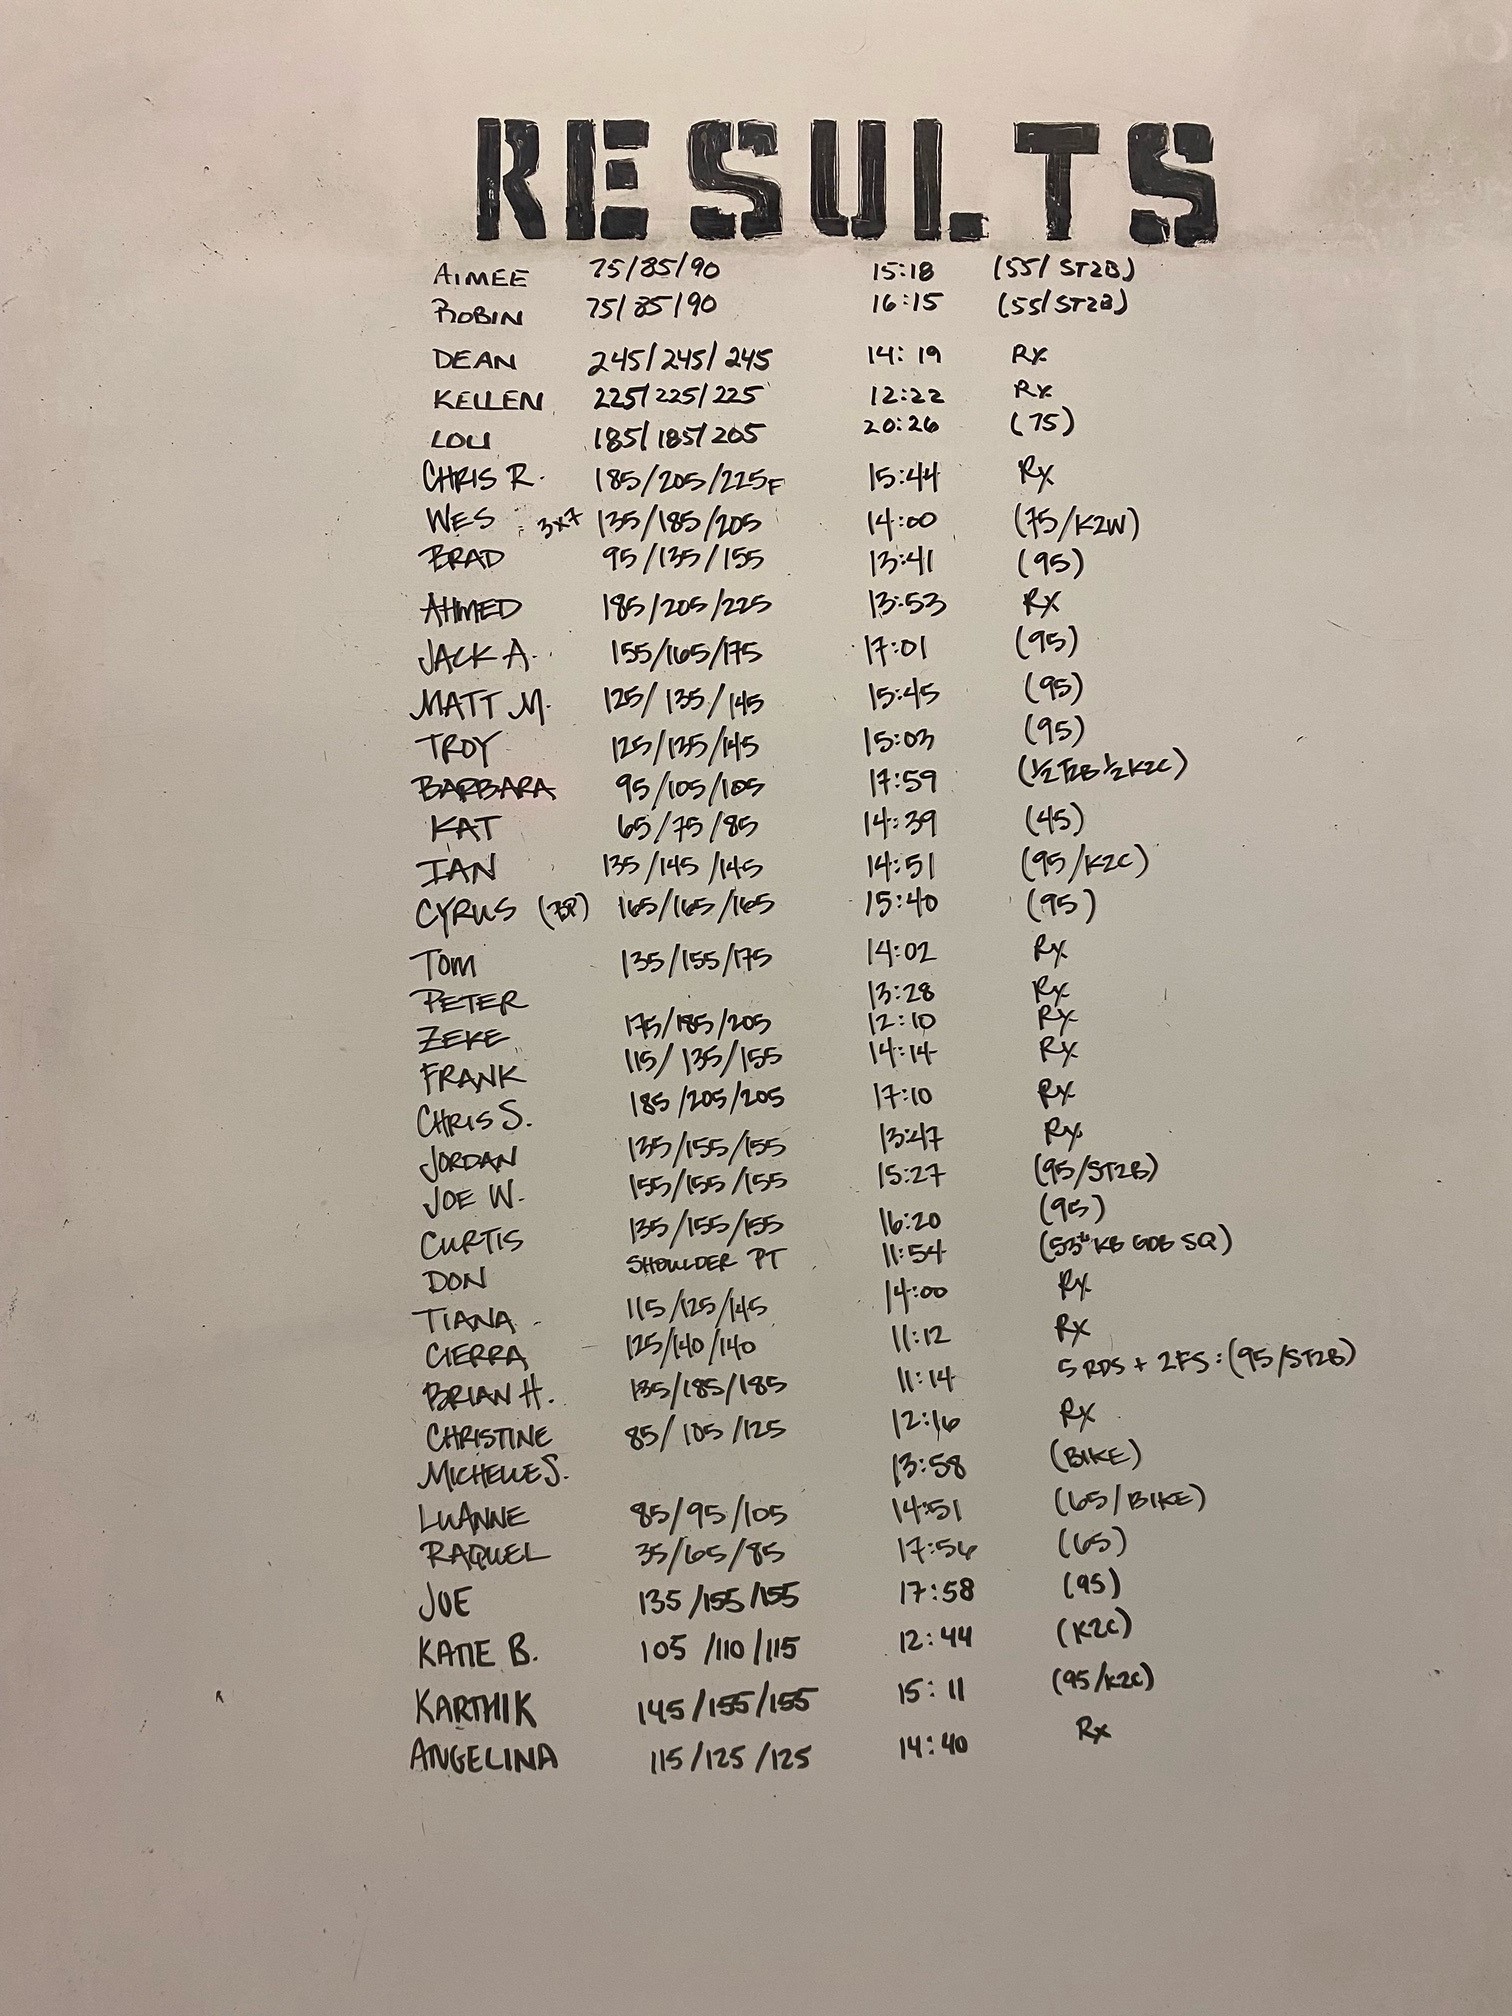 RESULTS
AIMEE 75/85/90 15:18 (55/ST2B)
ROBIN 75/85/90 16:15 (55/ST2B)
DEAN 245/245/245 14:19 Rx
KELLEN 225/225/225 12:22 Rx
LOU 185/185/205 20:26 (75)
CHRIS R. 185/205/225F 15:44 Rx
WES 3x7 135/185/205 14:00 (75/K2W)
BRAD 95/135/155 13:41 (95)
AHMED 185/205/225 13:53 Rx
JACK A. 155/165/175 17:01 (95)
MATT M. 125/135/145 15:45 (95)
TROY 125/135/145 15:03 (95)
BARBARA 95/105/105 17:59 (1/2 T2B 1/2 K2C)
KAT 65/75/85 14:39 (45)
IAN 135/145/145 14:51 (95/K2C)
CYRUS (BP) 165/165/165 15:40 (95)
TOM 135/155/175 14:02 Rx
PETER 13:28 Rx
ZEKE 175/185/205 12:10 Rx
FRANK 115/135/155 14:14 Rx
CHRIS S. 185/205/205 17:10 Rx
JORDAN 135/155/155 13:47 Rx
JOE W. 155/155/155 15:27 (95/ST2B)
CURTIS 135/155/155 16:20 (95)
DON SHOULDER PT 11:54 (53# KB GOB SQ)
TIANA 115/125/145 14:00 Rx
CIERRA 125/140/140 11:12 Rx
BRIAN H. 135/185/185 11:14 5 RDS + 2FS: (95/ST2B)
CHRISTINE 85/105/125 12:16 Rx
MICHELLE S. 13:58 (BIKE)
LUANNE 85/95/105 14:51 (65/BIKE)
RAQUEL 35/65/85 17:56 (65)
JOE 135/155/155 17:58 (95)
KATIE B. 105/110/115 12:44 (K2C)
KARTHIK 145/155/155 15:11 (95/K2C)
ANGELINA 115/125/125 14:40 Rx